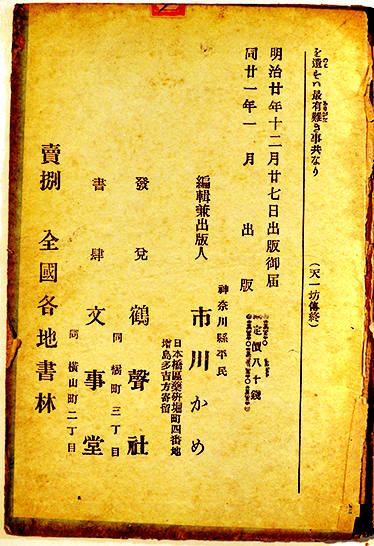 を遺せハ最有難き事共なり
(天一坊傳終)
明治廿年十二月廿七日出版御届
同廿一年一月出版
定價八十錢
神奈川縣平民
編輯兼出版人 市川かめ
日本橋區藥研堀町四番地
增島多吉方寄留
發兌 鶴聲社
同 橘町三丁目
書肆 文事堂
同 横山町二丁目
賣捌 全國各地書林